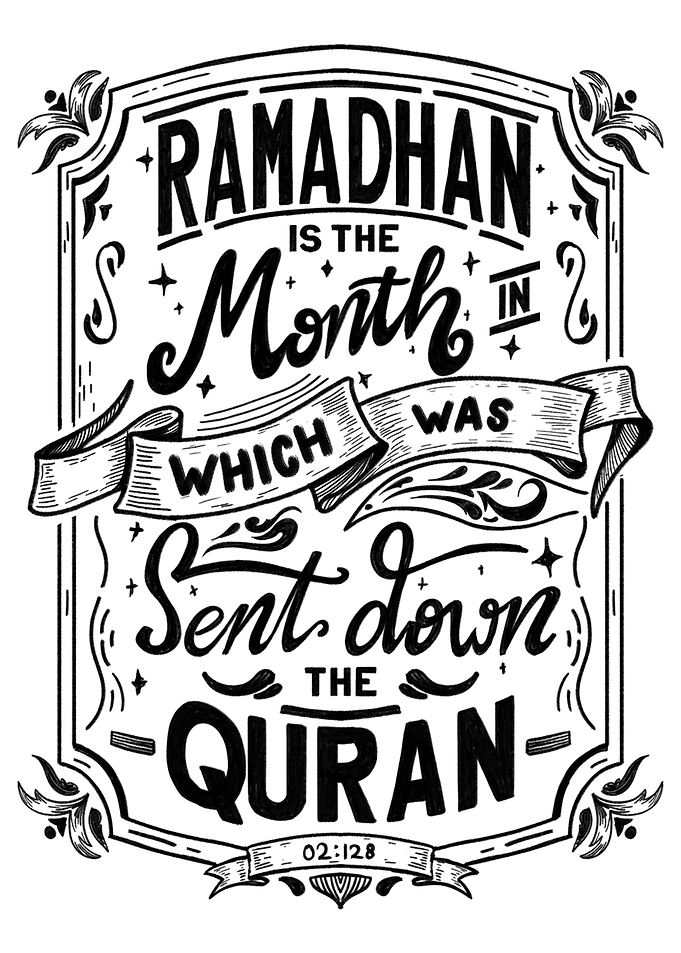 RAMADHAN
IS THE
Month IN
WHICH WAS
Sent down
THE
QURAN
02:128